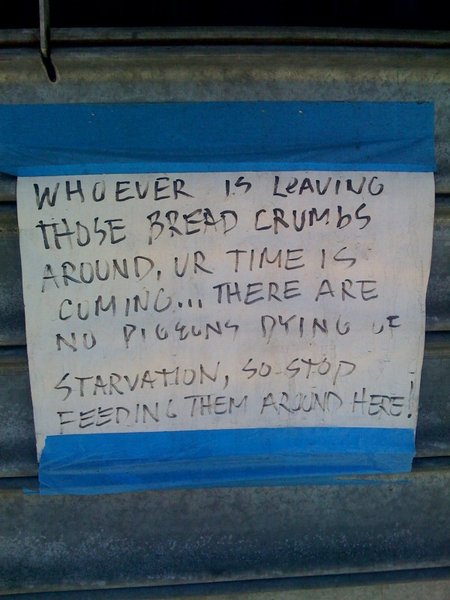 WHOEVER IS LEAVING
THOSE BREAD CRUMBS
AROUND, UR TIME IS
COMING... THERE ARE
NO PIGEONS DYING OF
STARVATION, SO STOP
FEEDING THEM AROUND HERE!